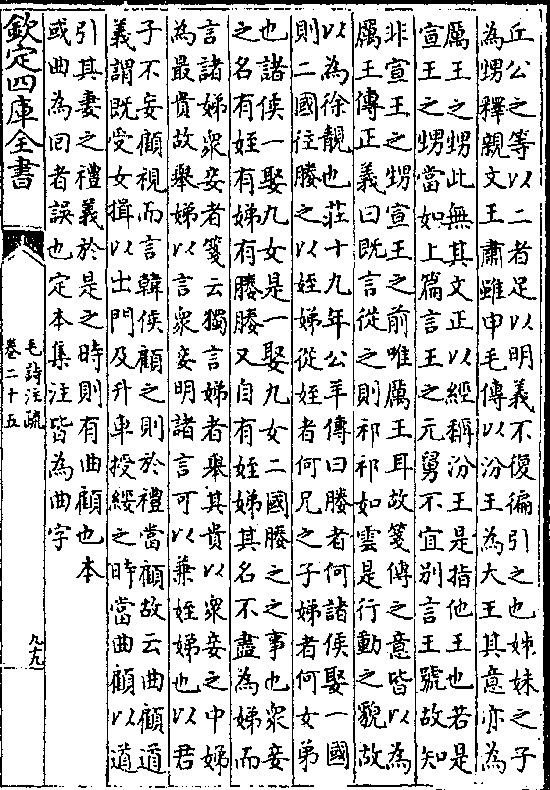 丘公之等以二者足以明義不復徧引之也姊妹之子
為甥釋親文王肅雖申毛傳以汾王為大王其意亦為
厲王之甥此無其文正以經稱汾王是指他王也若是
宣王之甥當如上篇言王之元舅不宜別言王號故知
非宣王之甥宣王之前唯厲王耳故箋傳之意皆以為
厲王傳正義曰既言從之則祁祁如雲是行動之貌故
以為徐靚也莊十九年公羊傳曰媵者何諸侯娶一國
則二國往媵之以姪娣從姪者何兄之子娣者何女弟
也諸侯一娶九女是一娶九女二國媵之之事也眾妾
之名有姪有娣有媵媵又自有姪娣其名不盡為娣而
言諸娣眾妾者箋云獨言娣者舉其貴以眾妾之中娣
為最貴故舉娣以言眾妾明諸言可以兼姪娣也以君
子不妄顧視而言韓侯顧之則於禮當顧故云曲顧道
義謂既受女揖以出門及升車授綏之時當曲顧以道
引其妻之禮義於是之時則有曲顧也本
或曲為回者誤也定本集注皆為曲字
欽定四庫全書
毛詩注疏
卷二十五
九十九